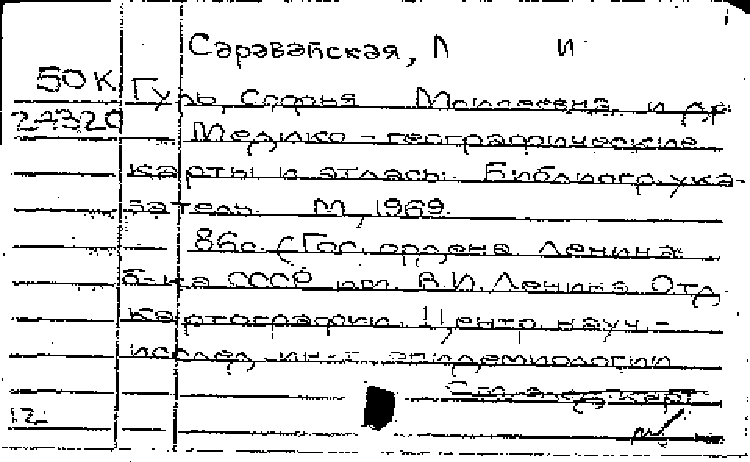 Саравайская, Л И
50К Гуль, Софья Моисеевна и др.
24320 Медико-географические
карты и атласы. Библиогр. ука-
затель. М., 1969.
86с. (Гос. ордена Ленина
б-ка СССР им. В.И. Ленина. Отд.
картографии. Центр. науч.-
исслед. ин-т эпидемиологии
См. след. карт.
12